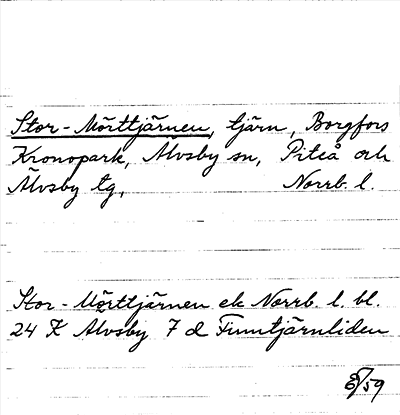 Stor-Mörttjärnen, tjärn, Borgfors
Kronopark, Älvsby sn, Piteå och
Älvsby tg, Norrb. l.
Stor-Mörttjärnen ek Norrb. l. bl.
24 K Älvsby 7 d Finntjärnliden